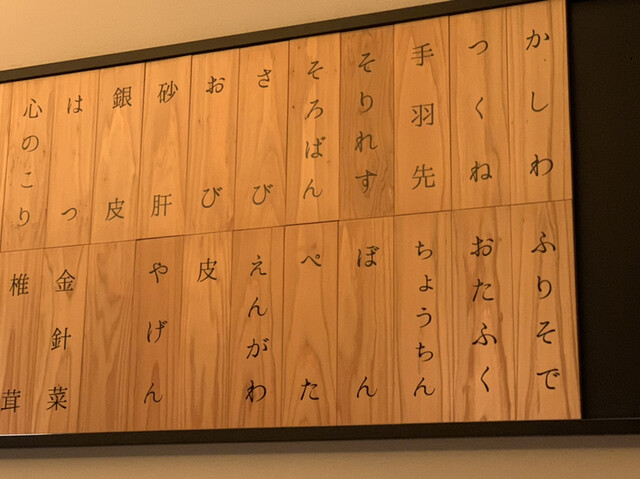 かしわ
つくね
手羽先
そりれす
そろばん
さび
おび
砂肝
銀皮
はつ
心のこり
ふりそで
おたふく
ちょうちん
ぼん
ぺた
えんがわ
皮
やげん
金針菜
椎茸